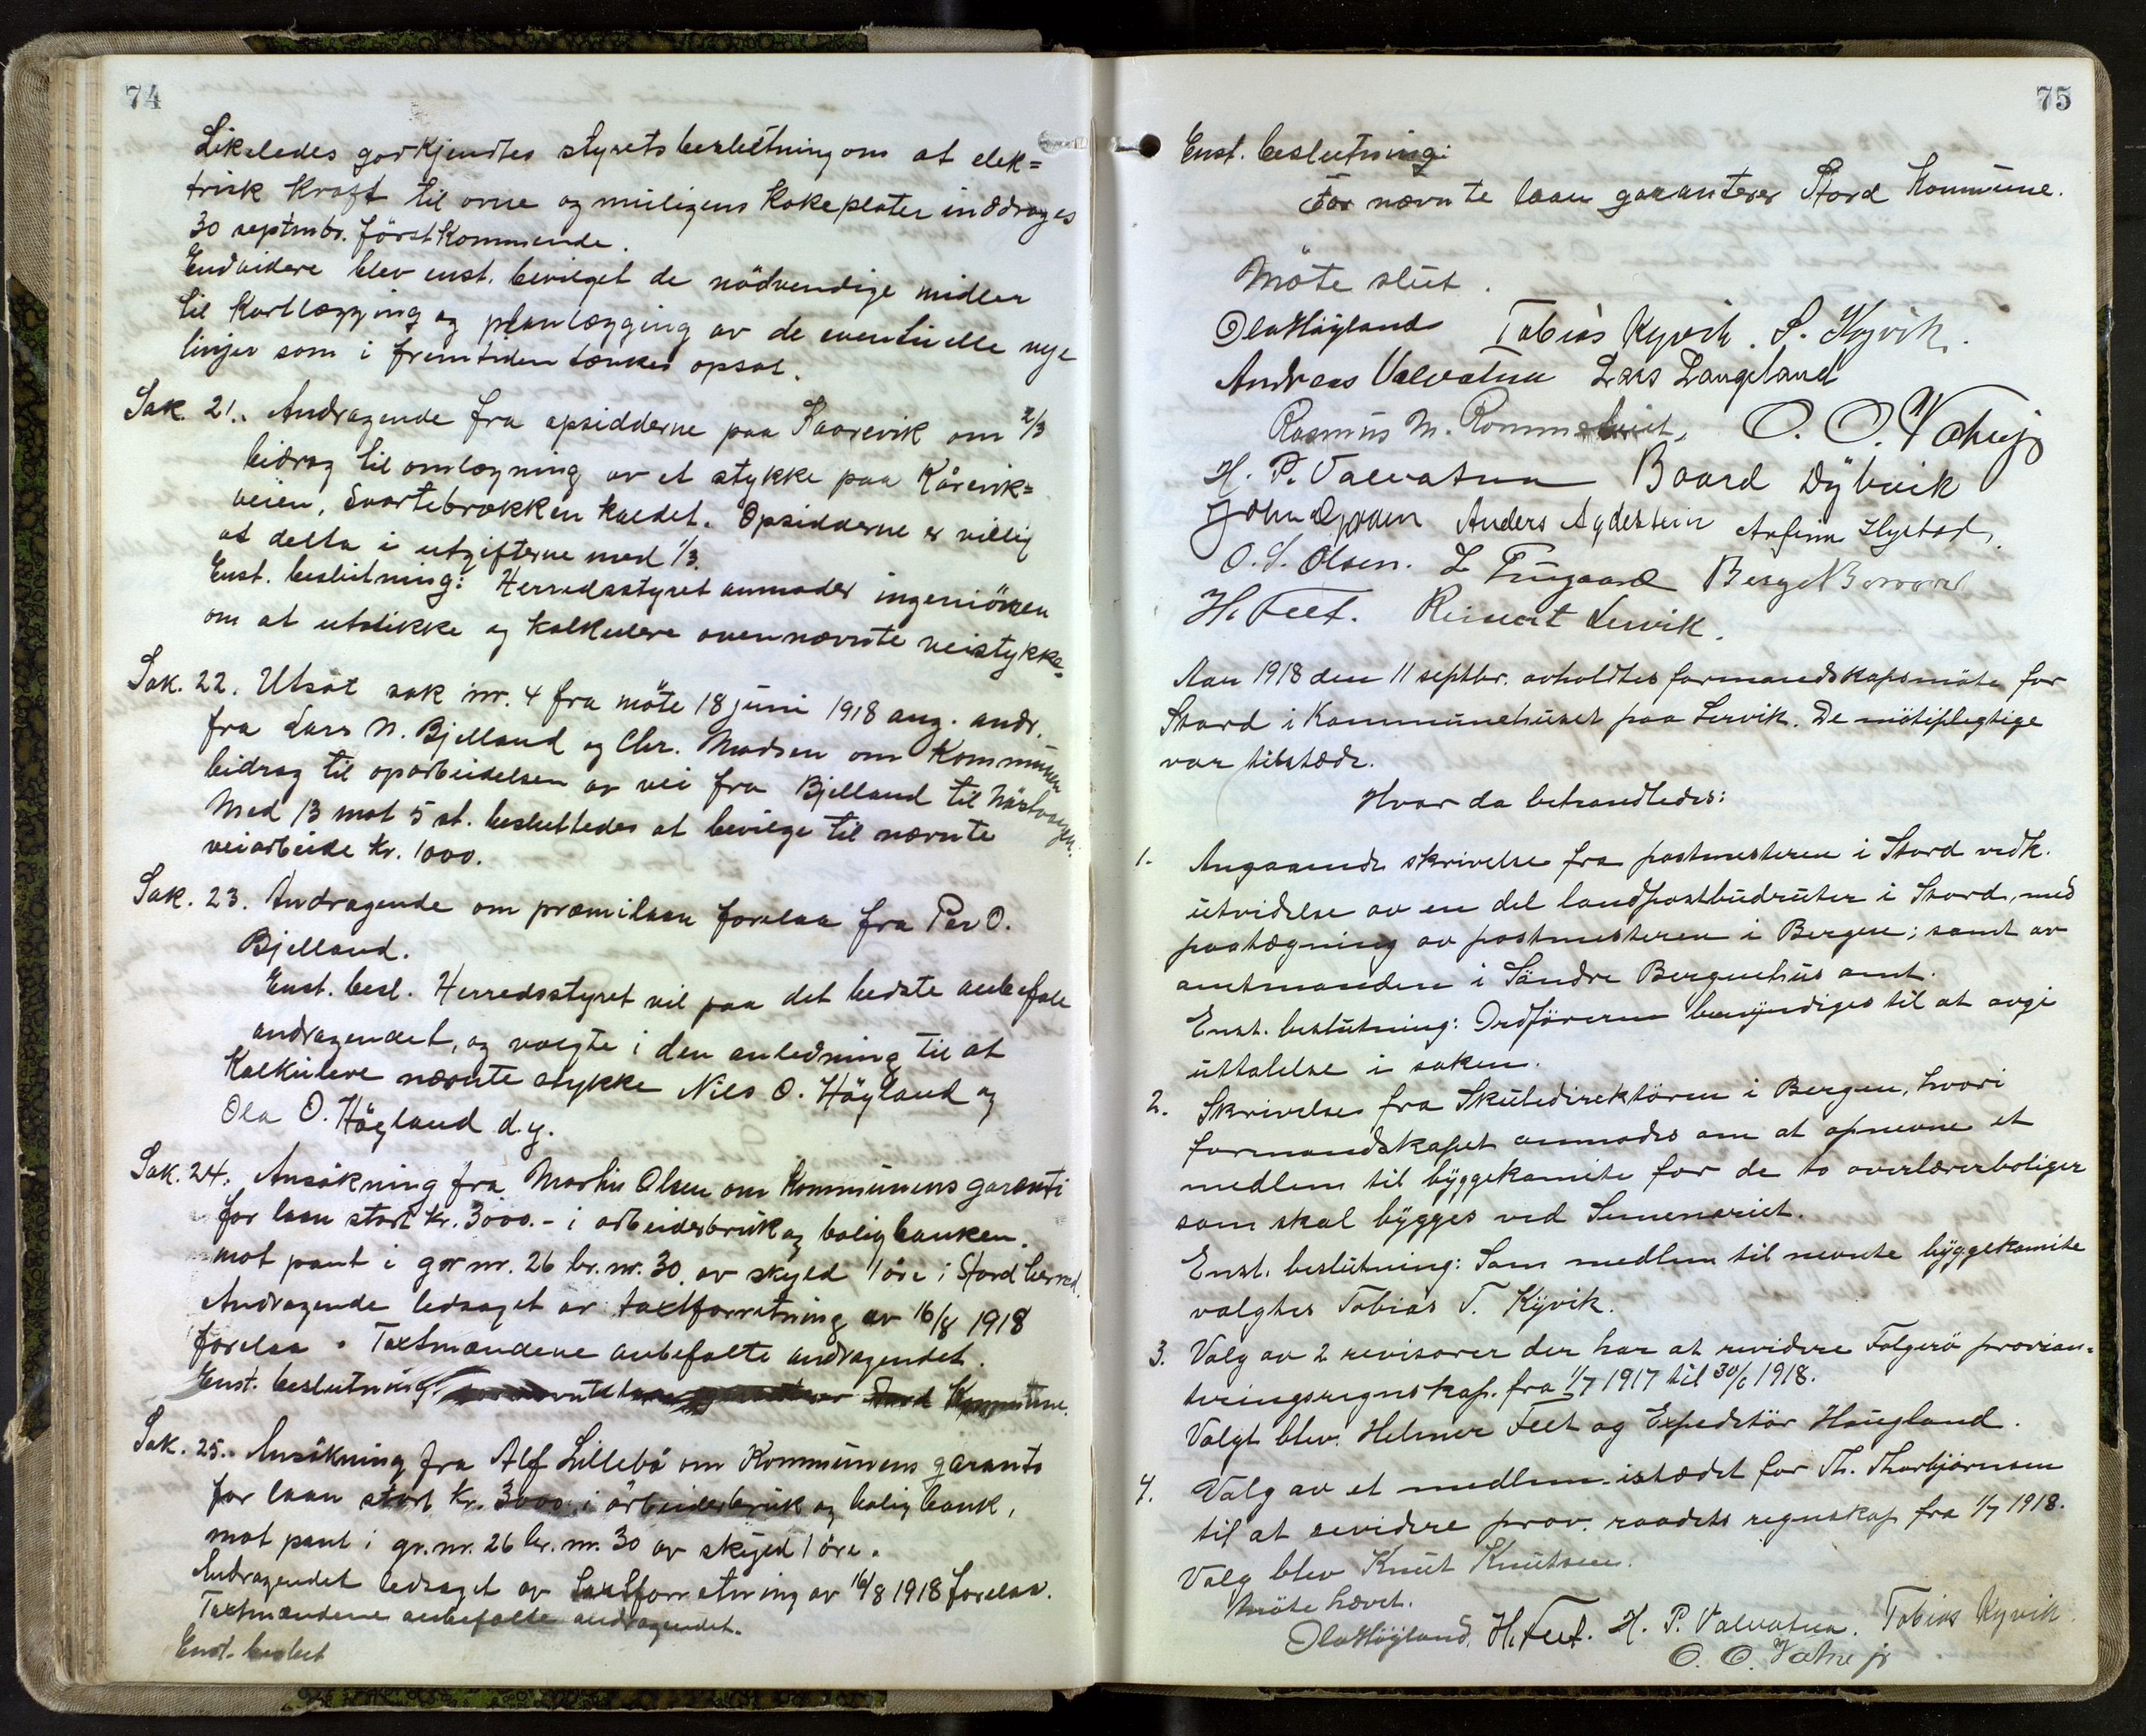 74
Likeledes godkjendtes styrets beslutning om at elek=
trisk kraft til ovne og muligens kokeplater inddrages
30 septmbr. förstkommende.
Endvidere blev enst. bevilget de nödvendige midler
til kartlægging og planlægging av de eventuelle nye
linjer som i fremtiden tænkes opsat.
Sak. 21. Andragende fra opsidderne paa Kaarevik om 2/3
bidrag til omlægning av et stykke paa Kårevik=
veien, Svartebrækken kaldet. Opsidderne er villig
at delta i utgifterne med 1/3.
Enst. beslutning: Herredsstyret anmoder ingeniören
om at utstikke og kalkulere ovennævnte veistykke.
Sak. 22. Utsat sak nr. 4 fra möte 18 juni 1918 ang. andr.
fra Lars N. Bjelland og Chr. Madsen om kommunen
bidrag til oparbeidelsen av vei fra Bjelland til
Med 13 mot 5 st. besluttedes at bevilge til nævnte
veiarbeide kr. 1000.
Sak. 23. Andragende om præmilaan forelaa fra Per O.
Bjelland.
Enst. besl. Herredsstyret vil paa det bedste anbefale
andragendet, og valgte i den anledning til at
kalkulere nævnte stykke Nils O. Höyland og
Ola O. Höyland d.y.
Sak. 24. Ansökning fra Martin Olsen om kommunens garanti
for laan stort kr. 3000.- i arbeiderbruk og boligbanken.
mot pant i gr nr. 26 br. nr. 30. av skyld 1 öre i Stord herred.
Andragende ledsaget av taxtforretning av 16/8 1918
forelaa. Taxtmændene anbefalte andragendet.
Enst. beslutning: for nævnte laan garanterer Stord Kommune.
Sak. 25. Ansökning fra Alf Lillebö om Kommunens garanti
for laan stort kr. 3000 i arbeiderbruk og boligbank,
mot pant i gr. nr. 26 br. nr. 30 av skyld 1 öre.
Andragendet ledsaget av taxtforretning av 16/8 1918 forelaa.
Taxtmændene anbefalte andragendet.
Enst. beslut
75
Enst. beslutning:
For nævnte laan garanterer Stord Kommune.
Möte slut.
Ola Höyland Tobias Kyvik. S. Kyvik.
Andreas Valvatna Lars Langeland
Rasmus M. O. O. Vatne jr
H. P. Valvatna Baard Dybvik
John Anders Agdestein Anfinn Hystad.
O. S. Olsen. L Børge
H. Feet. Reinert Lervik.
Aar 1918 den 11 septbr. avholdtes formandskapsmöte for
Stord i Kommunehuset paa Lervik. De mötepligtige
var tilstæde.
Hvor da behandledes:
1. Angaaende skrivelse fra postmesteren i Stord vedk.
utvidelse av en del landpostbudruter i Stord, med
paategning av postmesteren i Bergen; samt av
amtmanden i Söndre Bergenhus amt.
Enst. beslutning: Ordföreren bemyndiges til at avgi
uttalelse i saken.
2. Skrivelse fra Skuledirektören i Bergen, hvori
formandskapet anmodes om at opnevne et
medlem til byggekomite for de to overlærerboliger
som skal bygges ved Semenariet.
Enst. beslutning: Som medlem til nevnte byggekomite
valgtes Tobias T. Kyvik.
3. Valg av 2 revisorer der har at revidere Folgerö provian-
teringsregnskap. fra 1/7 1917 til 30/6 1918.
Valgt blev: Helmer Feet og Expeditör Haugland.
4. Valg av et medlem istædet for Th. Thorbjörnsen
til at revidere prov. raadets regnskap fra 1/7 1918.
Valg blev Knut Knutsen.
Möte hævet.
Ola Höyland, H. Feet. H. P. Valvatna. Tobias Kyvik
O. O. Vatne jr